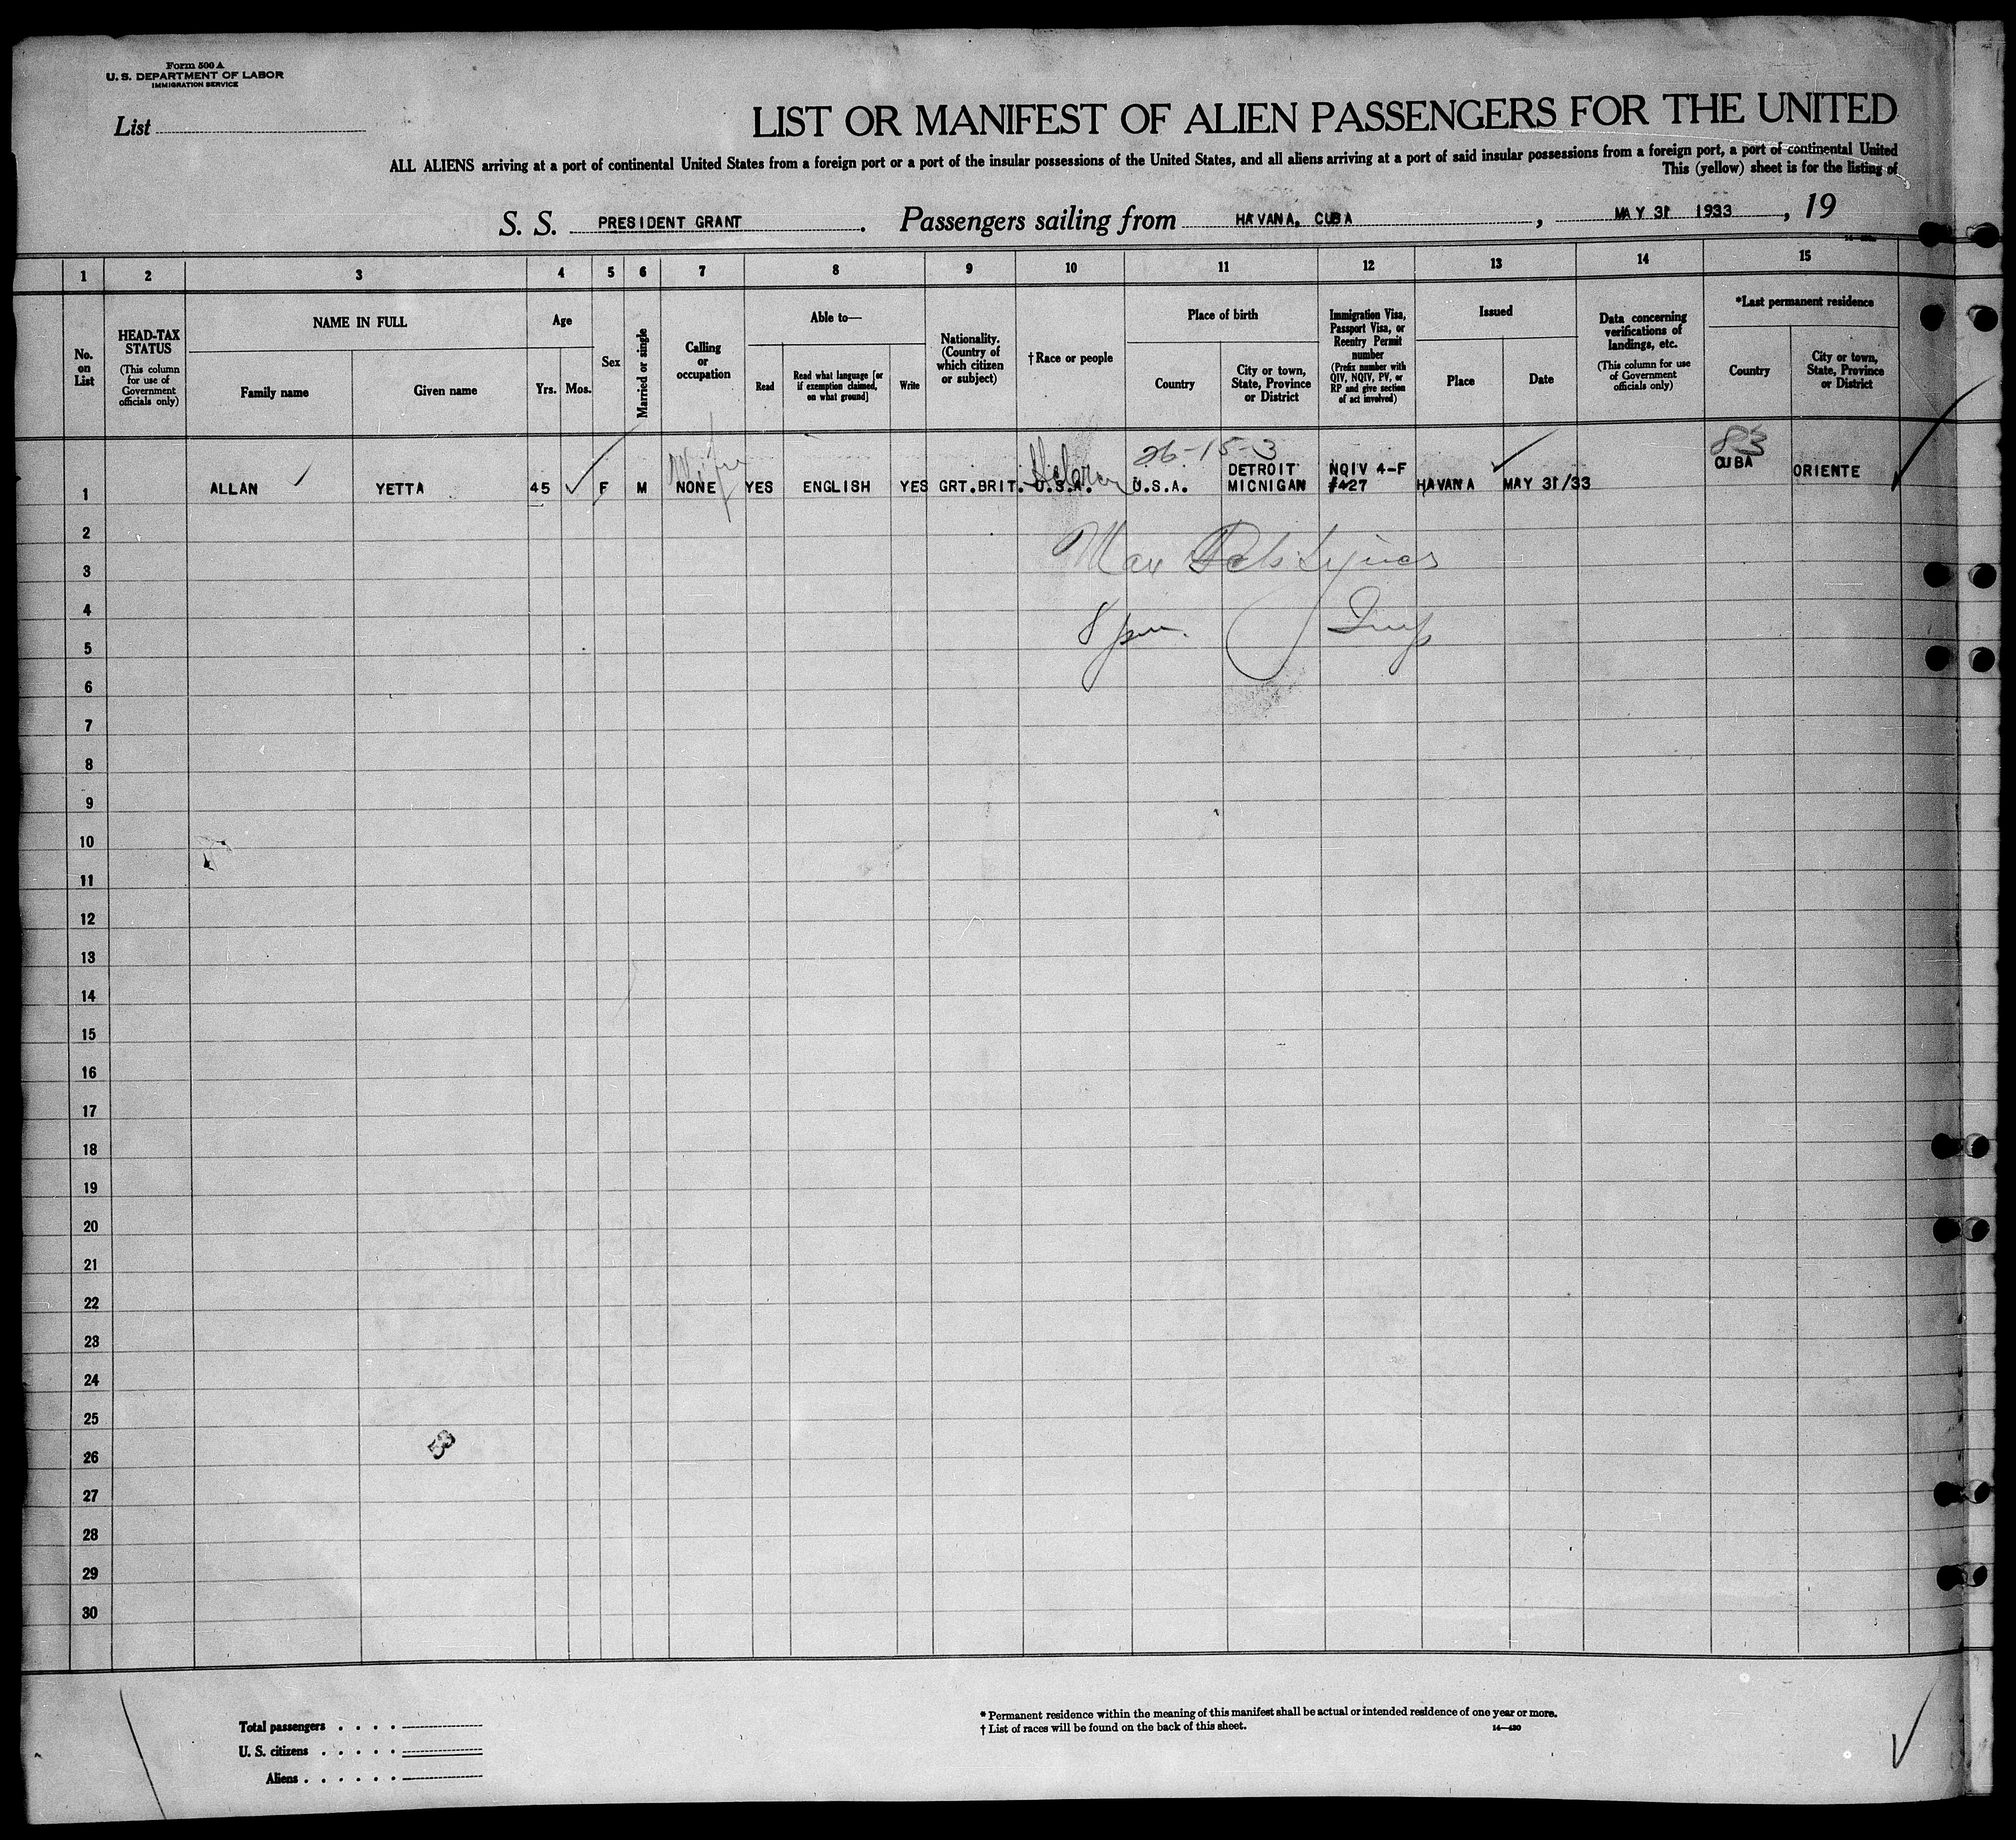 Form 500 A
U. S. DEPARTMENT OF LABOR
IMMIGRATION SERVICE
List
LIST OR MANIFEST OF ALIEN PASSENGERS FOR THE UNITED
ALL ALIENS arriving at a port of continental United States from a foreign port or a port of the insular possessions of the United States, and all aliens arriving at a port of said insular possessions from a foreign port, a port of continental United
This (yellow) sheet is for the listing of
S. S. PRESIDENT GRANT. Passengers sailing from HAVANA, CUBA, MAY 31 1933, 19
1 2 3 4 5 6 7 8 9 10 11 12 13 14 15
No. on List
HEAD-TAX STATUS
(This column for use of Government officials only)
NAME IN FULL
Family name
Given name
Age
Yrs. Mos.
Sex
Married or single
Calling or occupation
Able to—
Read
Read what language [or if exemption claimed, on what ground]
Write
Nationality. (Country of which citizen or subject)
†Race or people
Place of birth
Country
City or town, State, Province or District
Immigration Visa, Passport Visa, or Reentry Permit number
(Prefix number with QIV, NQIV, PV, or RP and give section of act involved)
Issued
Place
Date
Data concerning verifications of landings, etc.
(This column for use of Government officials only)
*Last permanent residence
Country
City or town, State, Province or District
Wife Hebrew 26-15-3 83
1 ALLAN YETTA 45 F M NONE YES ENGLISH YES GRT.BRIT. U.S.A. U.S.A. DETROIT MICNIGAN NQIV 4-F #427 HAVANA MAY 31/33 CUBA ORIENTE
2
3
4
8 pm. Insp
5
6
7
8
9
10
11
12
13
14
15
16
17
18
19
20
21
22
23
24
25
26
27
28
29
30
Total passengers . . . .
U. S. citizens . . . . .
Aliens . . . . . .
* Permanent residence within the meaning of this manifest shall be actual or intended residence of one year or more.
† List of races will be found on the back of this sheet. 14—430